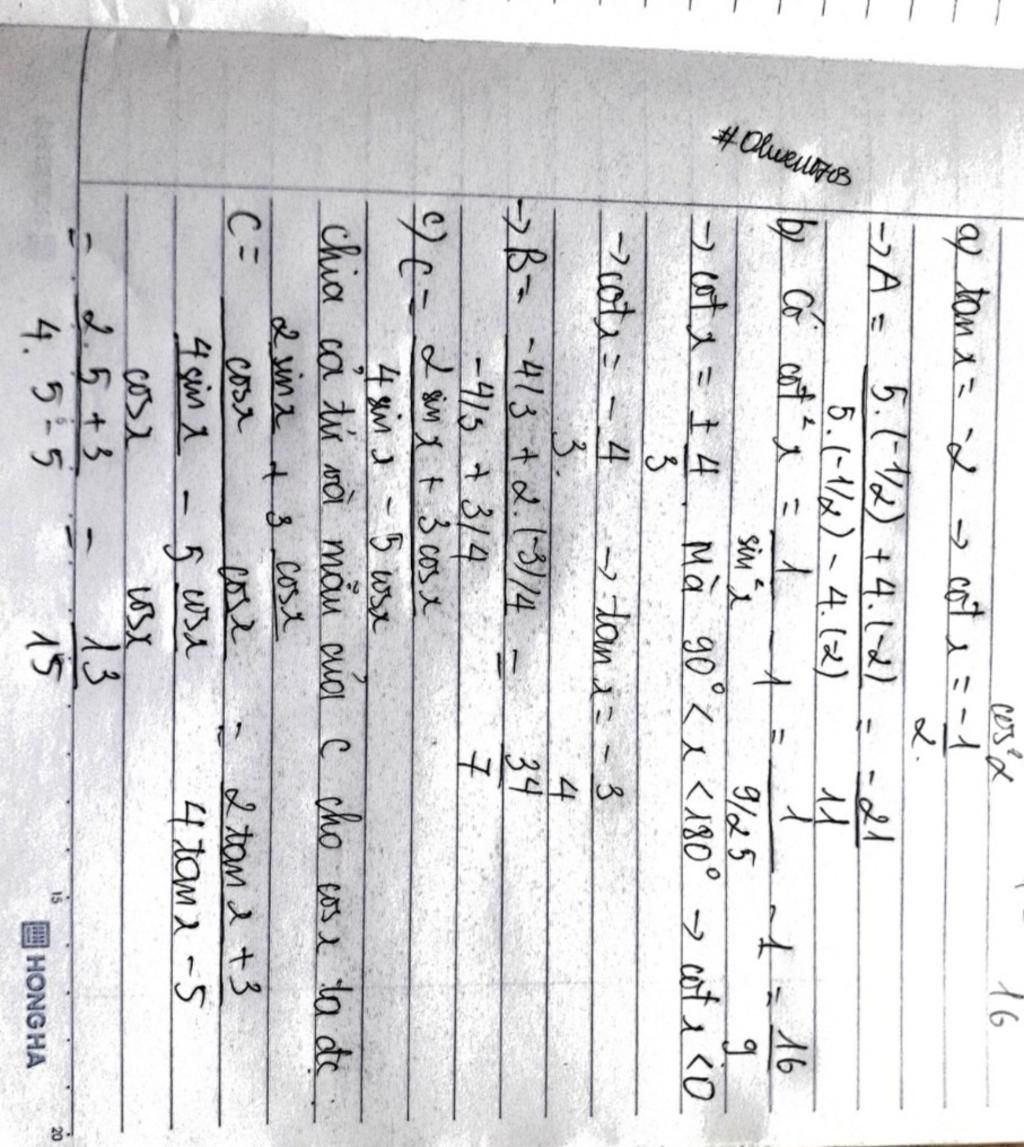 cos²x 16
a) tan x = -2 → cot x = -1/2.
→ A = (5.(-1/2) + 4.(-2)) / (5.(-1/2) - 4.(-2)) = -21/11
b) Có cot² x = 1/sin²x - 1 = 1/(9/25) - 1 = 16/9
→ cot x = ± 4/3. Mà 90° < x < 180° → cot x < 0
→ cot x = -4/3. → tan x = -3/4
→ B = (-4/3 + 2.(-3)/4) / (-4/3 + 3/4) = 34/7
c) C = (2 sin x + 3 cos x) / (4 sin x - 5 cos x)
chia cả tử và mẫu của C cho cos x ta đc
C = (2 sin x / cos x + 3 cos x / cos x) / (4 sin x / cos x - 5 cos x / cos x) = (2 tan x + 3) / (4 tan x - 5)
= (2.5 + 3) / (4.5 - 5) = 13/15
15 HONG HA 20